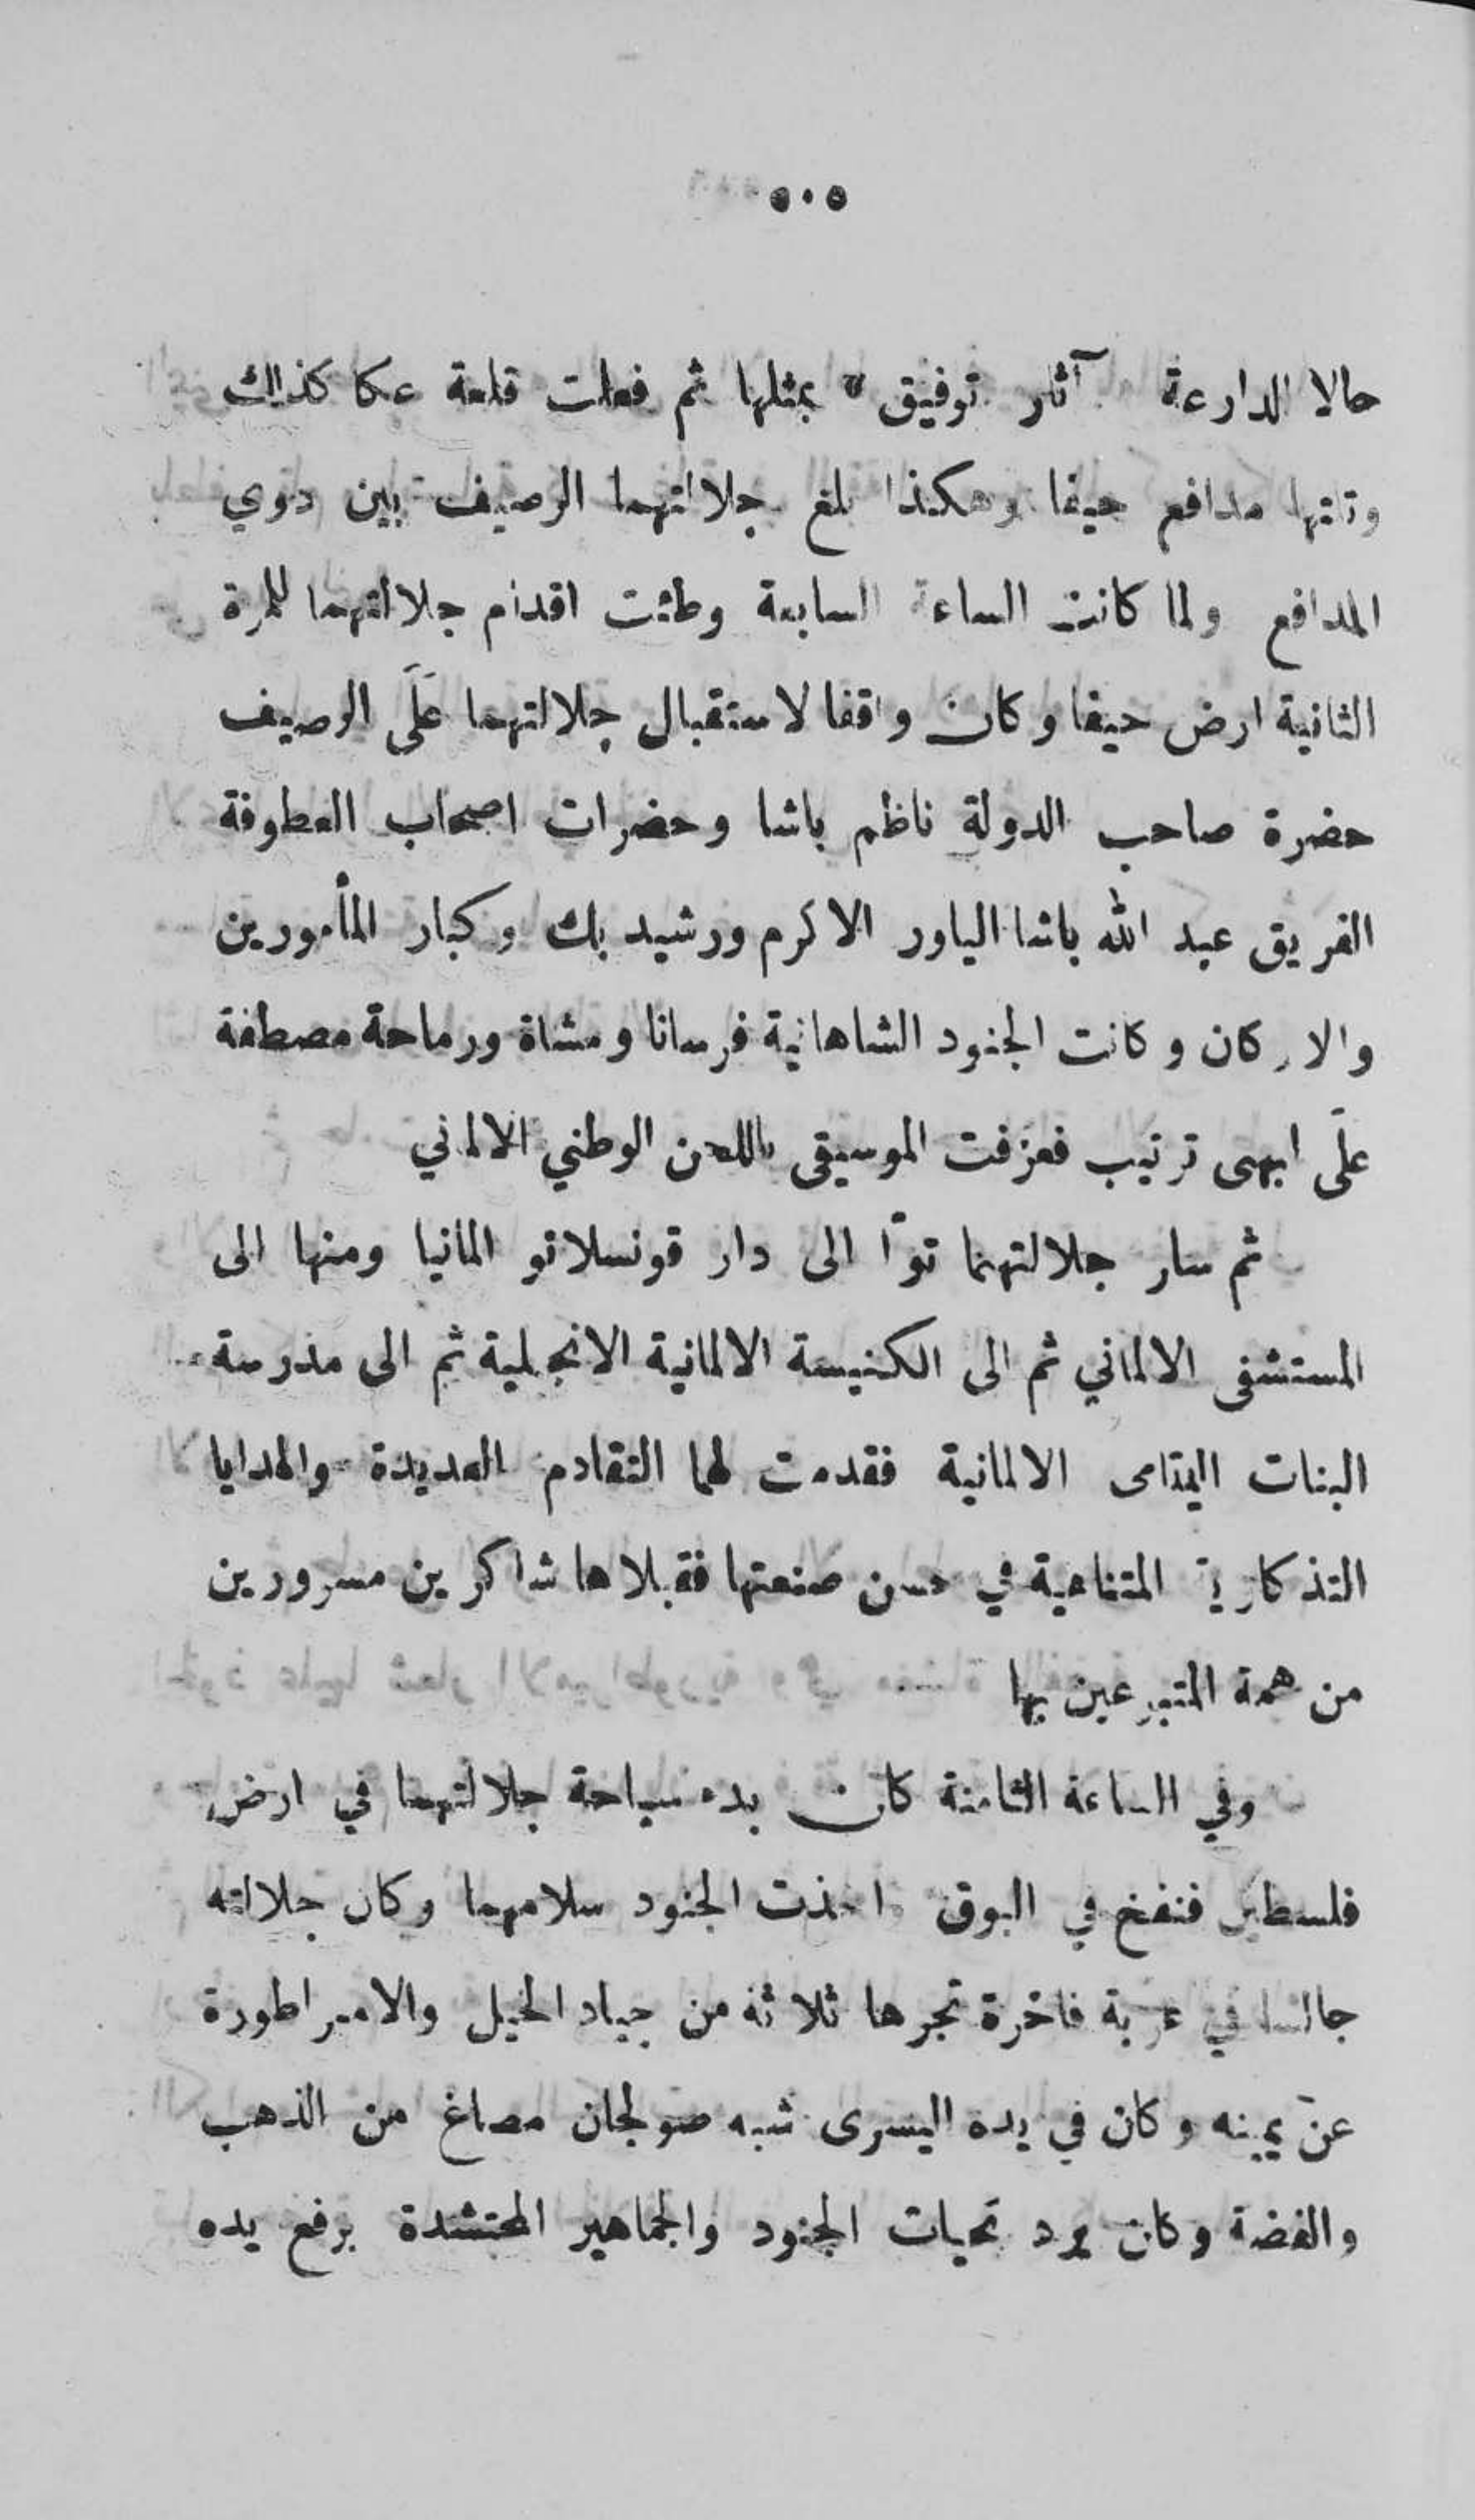 ٥٠٥
حالا الدارعة آثار توفيق » بمثلها ثم فعلت قلعة عكا كذلك
وتلتها مدافع حيفا وهكذا بلغ جلالتهما الرصيف بين دوي
المدافع ولما كانت الساعة السابعة وطئت اقدام جلالتهما للمرة
الثانية ارض حيفا وكان واقفا لاستقبال جلالتهما عَلَى الرصيف
حضرة صاحب الدولة ناظم باشا وحضرات اصحاب العطوفة
الفريق عبد الله باشا الياور الاكرم ورشيد بك وكبار المأمورين
والاركان وكانت الجنود الشاهانية فرسانا ومشاة ورماحة مصطفة
علَى ابهى ترتيب فعزفت الموسيقى باللحن الوطني الالماني
ثم سار جلالتهما توًّا الى دار قونسلاتو المانيا ومنها الى
المستشفى الالماني ثم الى الكنيسة الالمانية الانجلية ثم الى مدرسة
البنات اليتامى الالمانية فقدمت لهما التقادم العديدة والهدايا
التذكارية المتناهية في حسن صنعتها فقبلاها شاكرين مسرورين
من همة المتبرعين بها
وفي الساعة الثامنة كان بدء سياحة جلالتهما في ارض
فلسطين فنفخ في البوق واخذت الجنود سلامهما وكان جلالته
جالسا في عربة فاخرة تجرها ثلاثة من جياد الخيل والامبراطورة
عن يمينه وكان في يده اليسرى شبه صولجان مصاغ من الذهب
والفضة وكان يرد تحيات الجنود والجماهير المحتشدة برفع يده